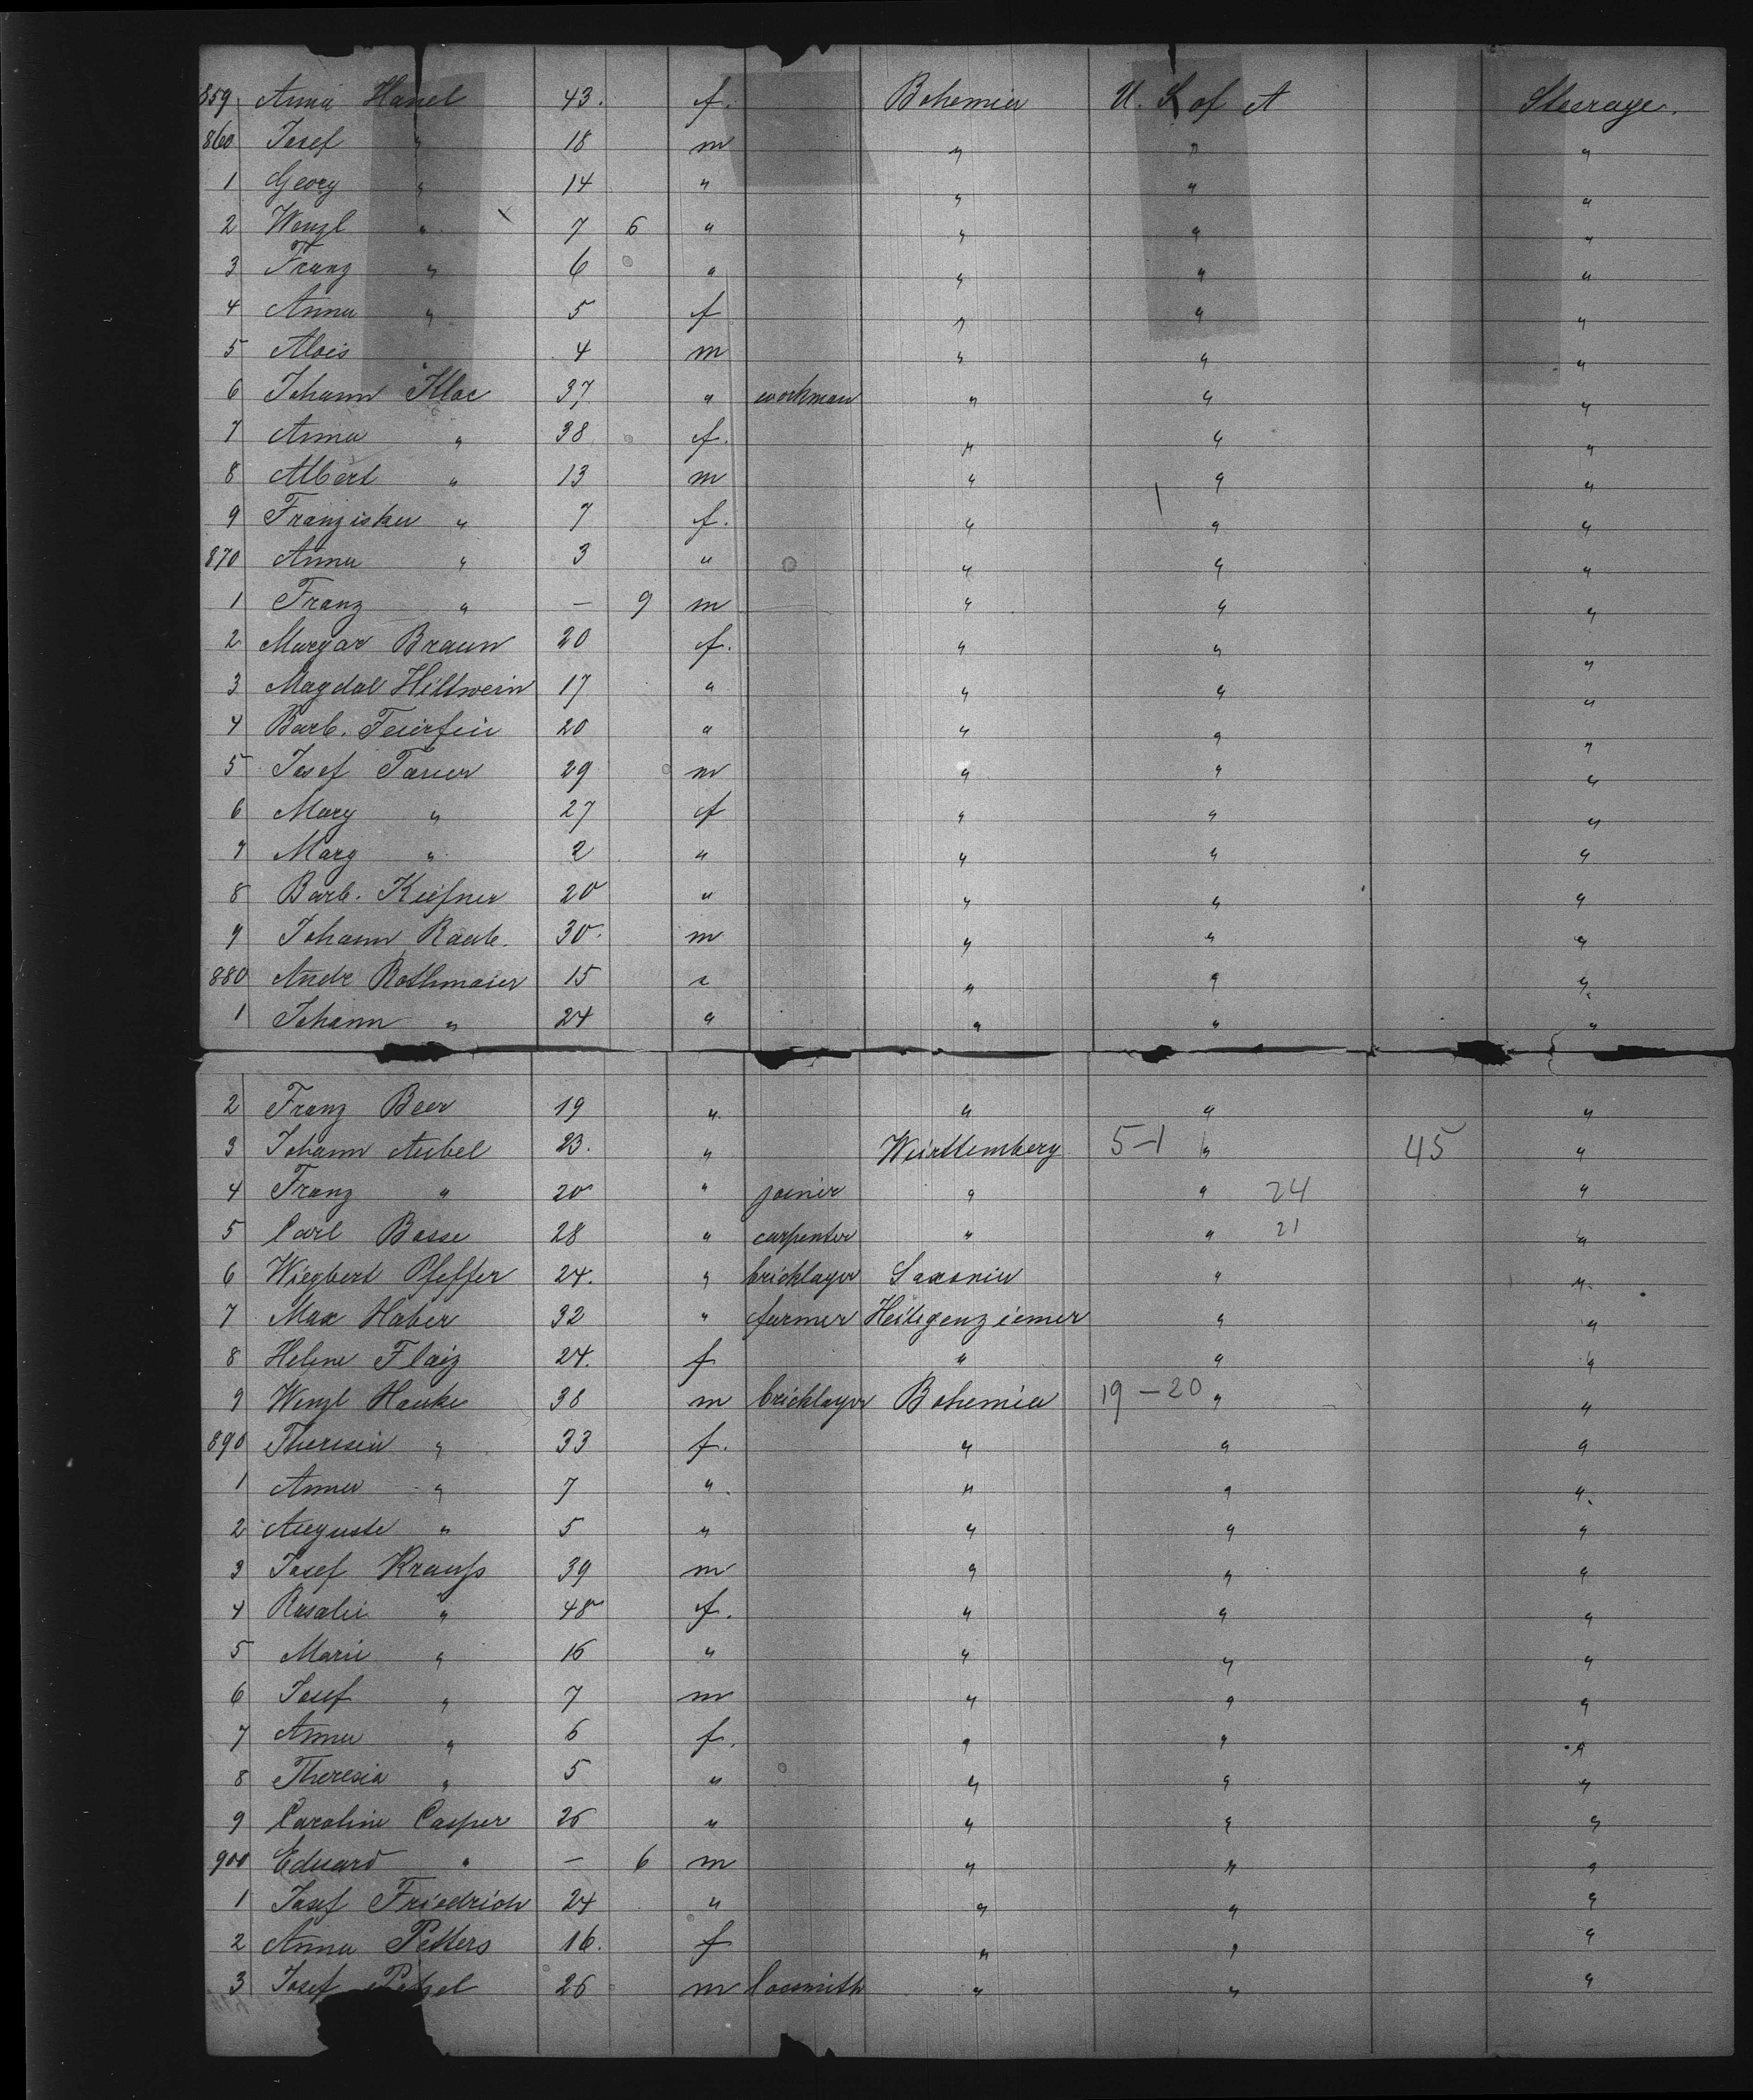 859 Anna Hanel 43. f. Bohemia U. S of A Steerage.
860 Josef " 18 m " " "
1 Georg " 14 " " " "
2 Wenzl " 7 6 " " " "
3 Franz " 6 " " " "
4 Anna " 5 f " " "
5 Alois " 4 m " " "
6 Johann Kloc 37 " workman " " "
7 Anna " 38 f. " " "
8 Albert " 13 m " " "
9 Franziska " 7 f. " " "
870 Anna " 3 " " " "
1 Franz " — 9 m " " "
2 Margar Braun 20 f. " " "
3 Magdal Hiltwein 17 " " " "
4 Barb. Feierfeil 20 " " " "
5 Josef Tauer 29 m " " "
6 Mary " 27 f " " "
7 Marg " 2 " " " "
8 Barb. Kiefner 20 " " " "
9 Johann Raab. 30. m " " "
880 Andr Rothmaier 15 " " " "
1 Johann " 24 " " " "
2 Franz Beer 19 " " " "
3 Johann Aubel 23. " Württemberg 5-1 " 45 "
4 Franz " 20 " joiner " " 24 "
5 Carl Basse 28 " carpenter " " 21 "
6 Wiegbert Pfeffer 24. " bricklayer Saxonia " "
7 Max Haber 32 " farmer Heiligenziemer " "
8 Helene Flaiz 24. f " " "
9 Wenzl Hauke 38 m bricklayer Bohemia 19-20 " "
890 Theresia " 33 f. " " "
1 Anna " 7 " " " "
2 Auguste " 5 " " " "
3 Josef Krauss 39 m " " "
4 Rosalie " 48 f. " " "
5 Marie " 16 " " " "
6 Josef " 7 m " " "
7 Anna " 6 f. " " "
8 Theresia " 5 " " " "
9 Caroline Casper 26 " " " "
900 Eduard " — 6 m " " "
1 Josef Friedrich 24 " " " "
2 Anna Petters 16. f " " "
3 Josef 26 m locsmith " " "